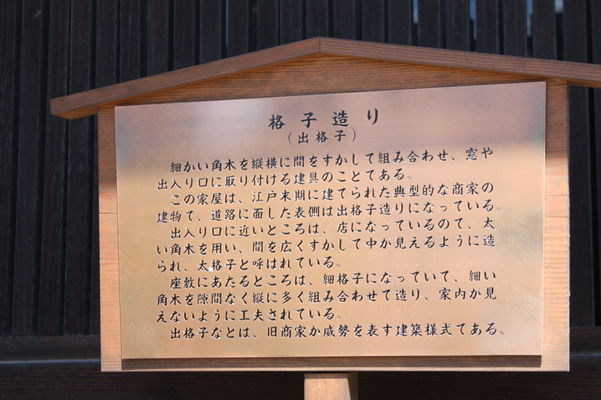 格子造り
(出格子)
細かい角木を縦横に間をすかして組み合わせ、窓や
出入り口に取り付ける建具のことである。
この家屋は、江戸末期に建てられた典型的な商家の
建物で、道路に面した表側は出格子造りになっている。
出入り口に近いところは、店になっているので、太
い角木を用い、間を広くすかして中が見えるように造
られ、太格子と呼ばれている。
座敷にあたるところは、細格子になっていて、細い
角木を隙間なく縦に多く組み合わせて造り、家内が見
えないように工夫されている。
出格子などは、旧商家が威勢を表す建築様式である。